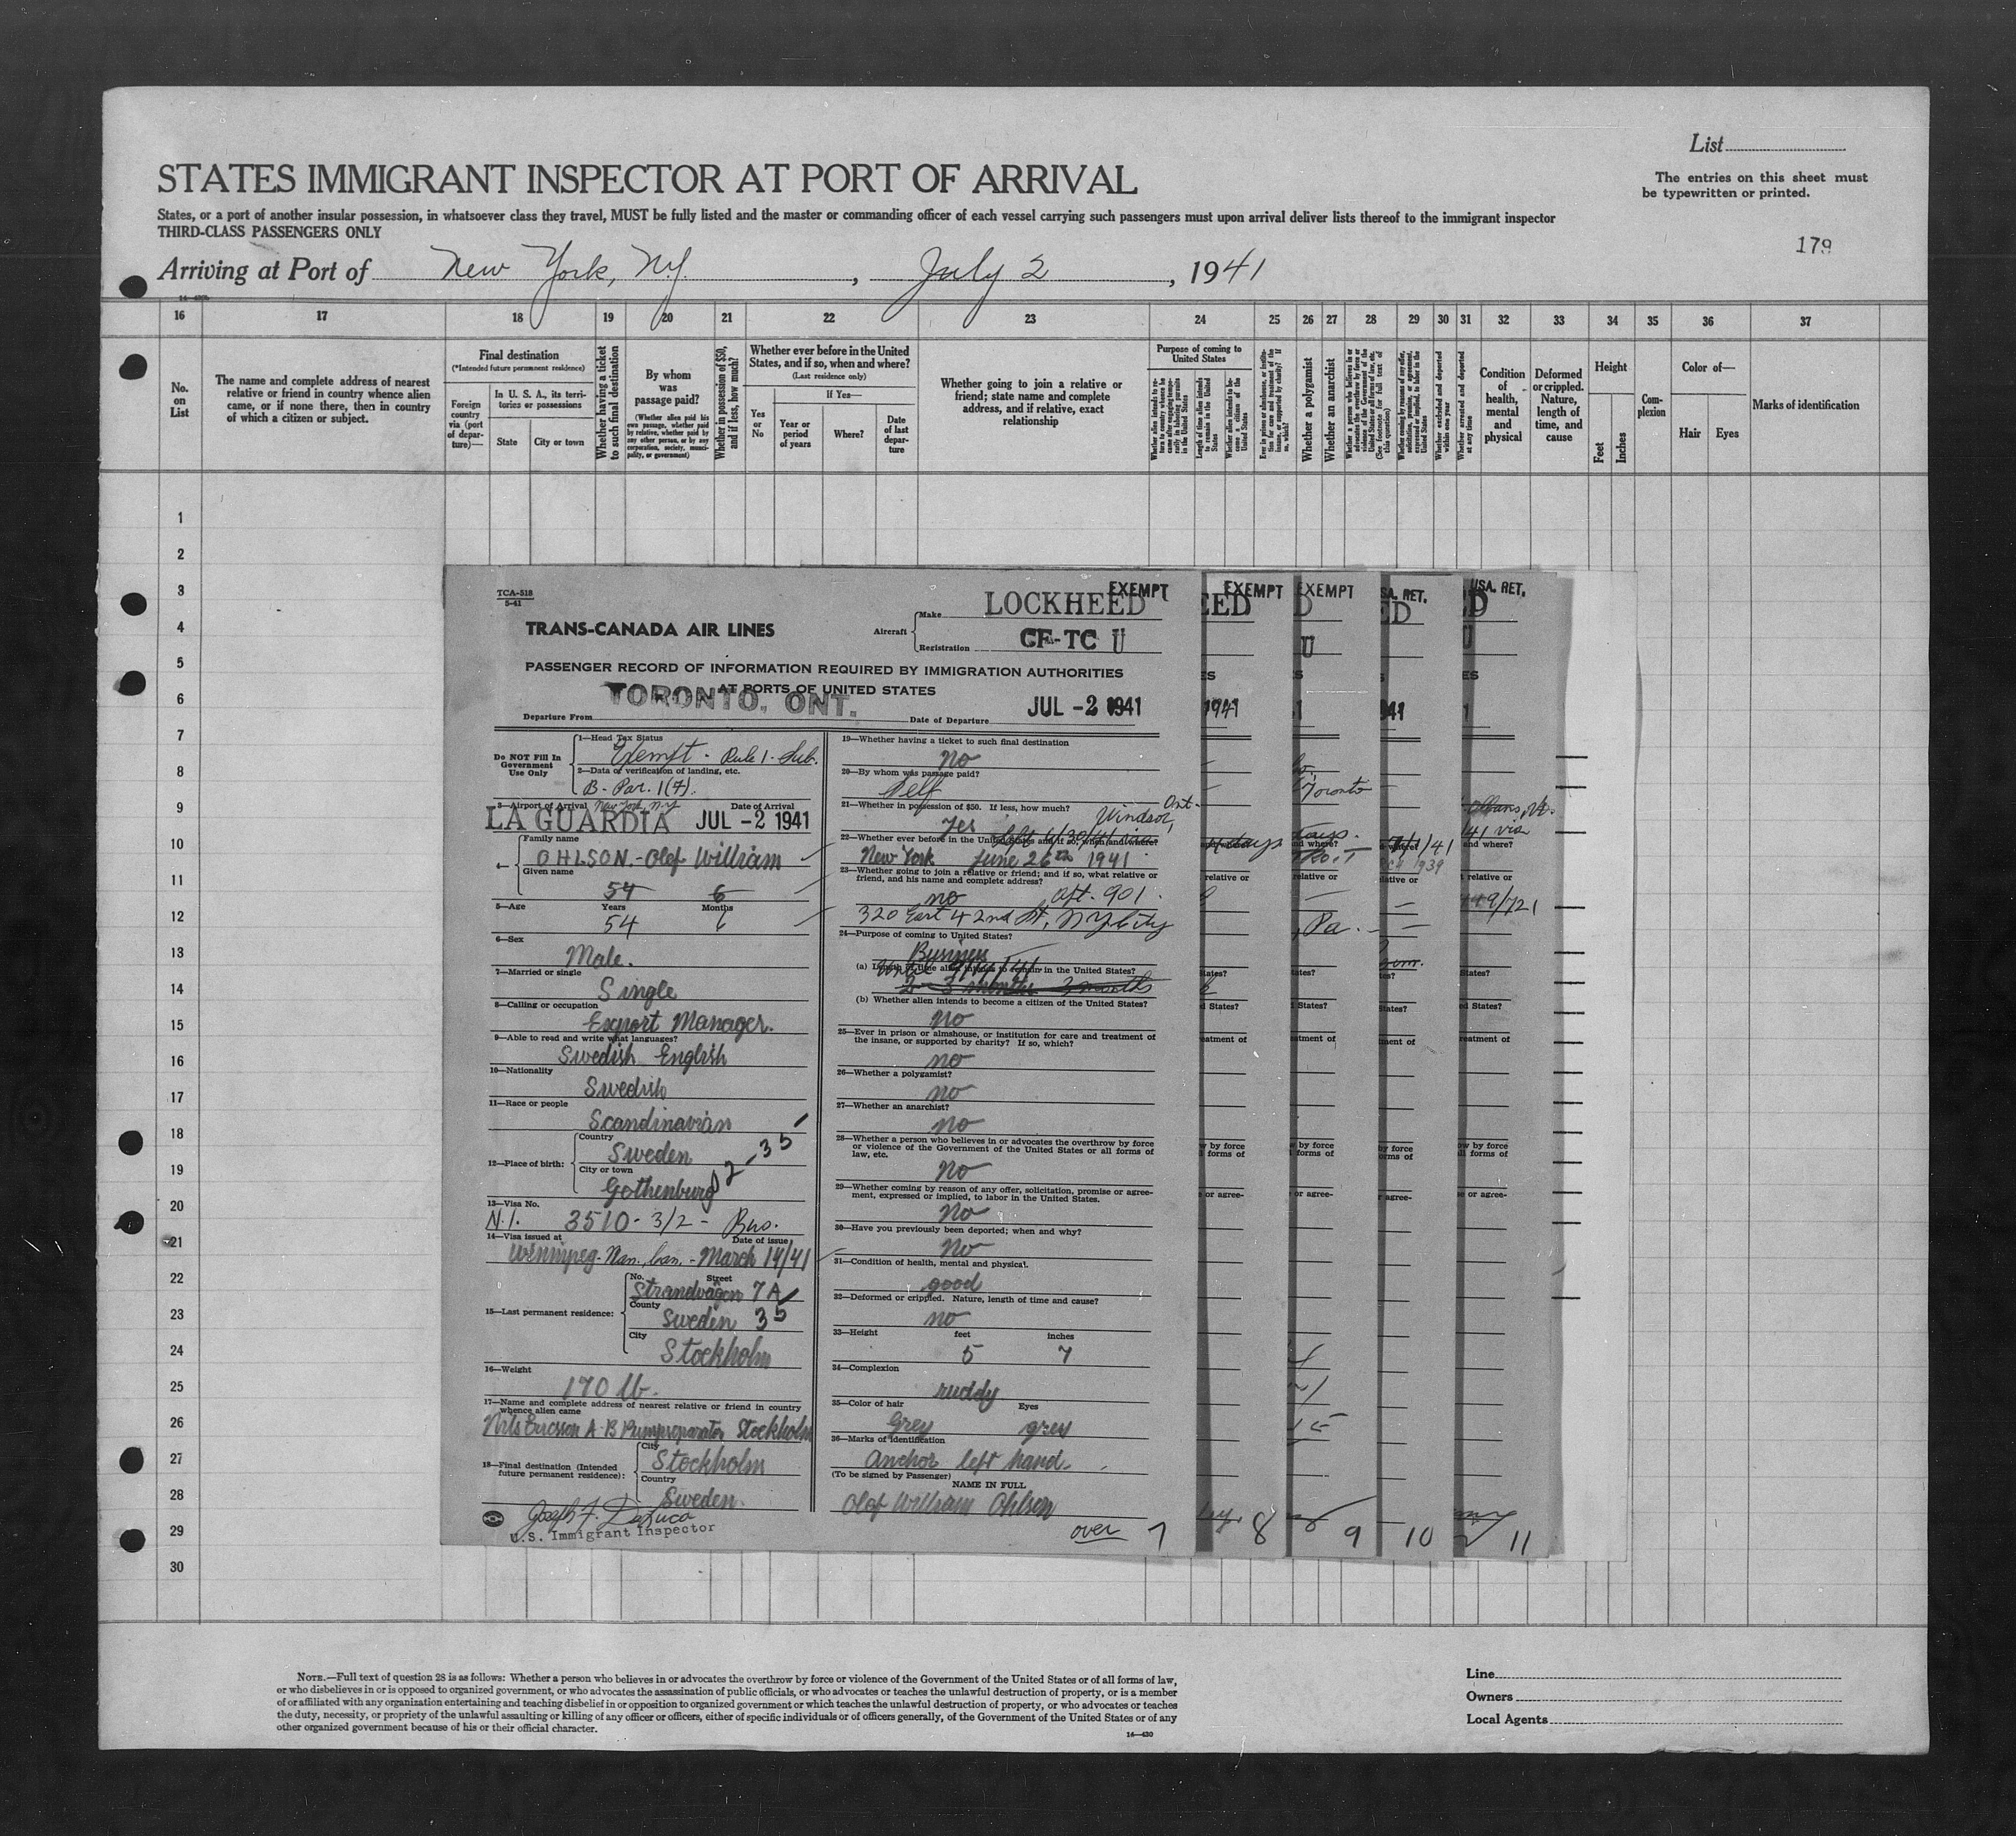 List
STATES IMMIGRANT INSPECTOR AT PORT OF ARRIVAL
The entries on this sheet must
be typewritten or printed.
States, or a port of another insular possession, in whatsoever class they travel, MUST be fully listed and the master or commanding officer of each vessel carrying such passengers must upon arrival deliver lists thereof to the immigrant inspector
THIRD-CLASS PASSENGERS ONLY
179
Arriving at Port of New York, N.Y. , July 2 , 1941
16 17 18 19 20 21 22 23 24 25 26 27 28 29 30 31 32 33 34 35 36 37
No. on List
The name and complete address of nearest relative or friend in country whence alien came, or if none there, then in country of which a citizen or subject.
Final destination
(*Intended future permanent residence)
Foreign country via (port of departure)—
In U. S. A., its territories or possessions
State
City or town
Whether having a ticket to such final destination
By whom was passage paid?
(Whether alien paid his own passage, whether paid by relative, whether paid by any other person, or by any corporation, society, municipality, or government)
Whether in possession of $50, and if less, how much?
Whether ever before in the United States, and if so, when and where?
(Last residence only)
If Yes—
Yes or No
Year or period of years
Where?
Date of last departure
Whether going to join a relative or friend; state name and complete address, and if relative, exact relationship
Purpose of coming to United States
Length of time alien intends to remain in the United States
Whether alien intends to become a citizen of the United States
Whether a polygamist
Whether an anarchist
Whether excluded and deported within one year
Whether arrested and deported at any time
Condition of health, mental and physical
Deformed or crippled. Nature, length of time, and cause
Height
Feet
Inches
Complexion
Color of—
Hair
Eyes
Marks of identification
1
2
3
4
5
6
7
8
9
10
11
12
13
14
15
16
17
18
19
20
21
22
23
24
25
26
27
28
29
30
TCA-518
5-41
TRANS-CANADA AIR LINES
Aircraft
Make LOCKHEED
EXEMPT
Registration CF-TC U
PASSENGER RECORD OF INFORMATION REQUIRED BY IMMIGRATION AUTHORITIES
AT PORTS OF UNITED STATES
Departure From TORONTO, ONT. Date of Departure JUL -2 1941
Do NOT Fill In
Government
Use Only
1—Head Tax Status
Exempt - Rule 1 - Sub.
2—Data of verification of landing, etc.
B - Par. 1(7).
3—Airport of Arrival New York, N.Y. Date of Arrival
LA GUARDIA JUL -2 1941
4—
Family name
OHLSON.- Olof William
Given name
54 6
5—Age Years Months
54 6
6—Sex
Male.
7—Married or single
Single
8—Calling or occupation
Export Manager.
9—Able to read and write what languages?
Swedish English
10—Nationality
Swedish
11—Race or people
Scandinavian
12—Place of birth:
Country
Sweden
City or town
Gothenburg
2-35
13—Visa No.
N.I. 3510 - 3/2 - Bus.
14—Visa issued at Date of issue
Winnipeg - Man., Can. - March 14/41
15—Last permanent residence:
No. Street
Strandvägen 7A
County
Sweden 35
City
Stockholm
16—Weight
170 lb.
17—Name and complete address of nearest relative or friend in country
whence alien came
Nils Ericsson A-B Pumpseparator Stockholm
18—Final destination (Intended
future permanent residence):
City
Stockholm
Country
Sweden.
Joseph F. DeLuca
U.S. Immigrant Inspector
19—Whether having a ticket to such final destination
no
20—By whom was passage paid?
Self
21—Whether in possession of $50. If less, how much?
Yes
left 6/30/41 via Windsor, Ont.
22—Whether ever before in the United States and if so, when and where?
New York June 26th 1941
23—Whether going to join a relative or friend; and if so, what relative or
friend, and his name and complete address?
no Apt. 901.
320 East 42nd St, NY City
24—Purpose of coming to United States?
Business
(a) Length of time alien intends to remain in the United States?
3 months
(b) Whether alien intends to become a citizen of the United States?
No
25—Ever in prison or almshouse, or institution for care and treatment of
the insane, or supported by charity? If so, which?
no
26—Whether a polygamist?
no
27—Whether an anarchist?
no
28—Whether a person who believes in or advocates the overthrow by force
or violence of the Government of the United States or all forms of
law, etc.
no
29—Whether coming by reason of any offer, solicitation, promise or agree-
ment, expressed or implied, to labor in the United States.
no
30—Have you previously been deported; when and why?
No
31—Condition of health, mental and physical.
good
32—Deformed or crippled. Nature, length of time and cause?
no
33—Height feet inches
5 7
34—Complexion
ruddy
35—Color of hair Eyes
Grey grey
36—Marks of identification
Anchor left hand.
(To be signed by Passenger)
NAME IN FULL
Olof William Ohlson
over 7
EXEMPT EXEMPT USA. RET.
Toronto
8 9 10 11
NOTE.—Full text of question 28 is as follows: Whether a person who believes in or advocates the overthrow by force or violence of the Government of the United States or of all forms of law,
or who disbelieves in or is opposed to organized government, or who advocates the assassination of public officials, or who advocates or teaches the unlawful destruction of property, or is a member
of or affiliated with any organization entertaining and teaching disbelief in or opposition to organized government or which teaches the unlawful destruction of property, or who advocates or teaches
the duty, necessity, or propriety of the unlawful assaulting or killing of any officer or officers, either of specific individuals or of officers generally, of the Government of the United States or of any
other organized government because of his or their official character.
14—430
Line
Owners
Local Agents